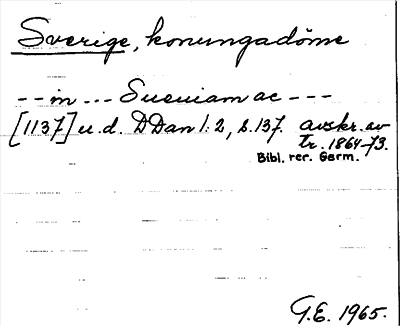 Sverige, konungadöme
-- in --- Sueuiam ac ---
[1137] u.d. DDan 1:2, s.137. avskr. av
tr. 1864-73.
Bibl. rer. Germ.
G.E. 1965.